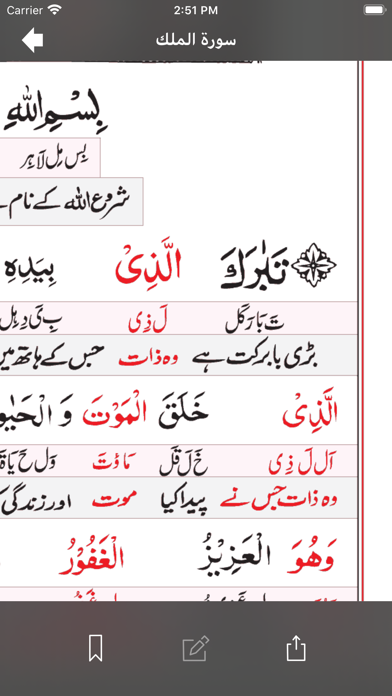 Carrier 2:51 PM
سورة الملك
بِسْمِ اللّٰهِ
بِس مِل لَاہِر
شروع اللہ کے نام
تَبٰرَكَ الَّذِیْ بِیَدِهِ
تَ بَارَ كَل لَ ذِی بِ یَ دِ ہِل
بڑی بابرکت ہے وہ ذات جس کے ہاتھ میں
الَّذِیْ خَلَقَ الْمَوْتَ وَ الْحَیٰو
اَل لَ ذِی خَ لَ قَل مَاؤتَ وَل حَ یَا ةَ
وہ ذات جس نے پیدا کیا موت اور زندگی
وَهُوَ الْعَزِیْزُ الْغَفُوْرُ